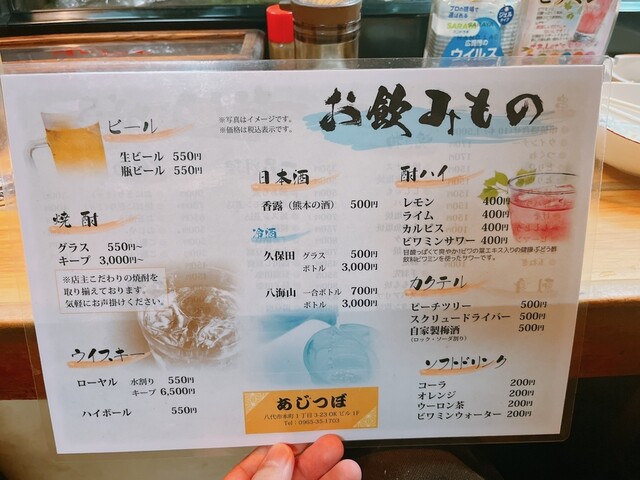 プロの現場で
選ばれてる
SARAYA
広範囲の
ウイルス
お飲みもの
※写真はイメージです。
※価格は税込表示です。
ビール
生ビール 550円
瓶ビール 550円
焼酎
グラス 550円~
キープ 3,000円~
※店主こだわりの焼酎を
取り揃えております。
気軽にお声掛けください。
ウイスキー
ローヤル 水割り 550円
キープ 6,500円
ハイボール 550円
日本酒
香露（熊本の酒） 500円
冷酒
久保田 グラス 500円
ボトル 3,000円
八海山 一合ボトル 700円
ボトル 3,000円
あじつぼ
八代市本町1丁目3-23 OKビル1F
Tel：0965-35-1703
酎ハイ
レモン 400円
ライム 400円
カルピス 400円
ビワミンサワー 400円
甘酸っぱくて爽やか！ビワの葉エキス入りの健康ぶどう酢
飲料ビワミンを使ったサワーです。
カクテル
ピーチツリー 500円
スクリュードライバー 500円
自家製梅酒 500円
（ロック・ソーダ割り）
ソフトドリンク
コーラ 200円
オレンジ 200円
ウーロン茶 200円
ビワミンウォーター 200円